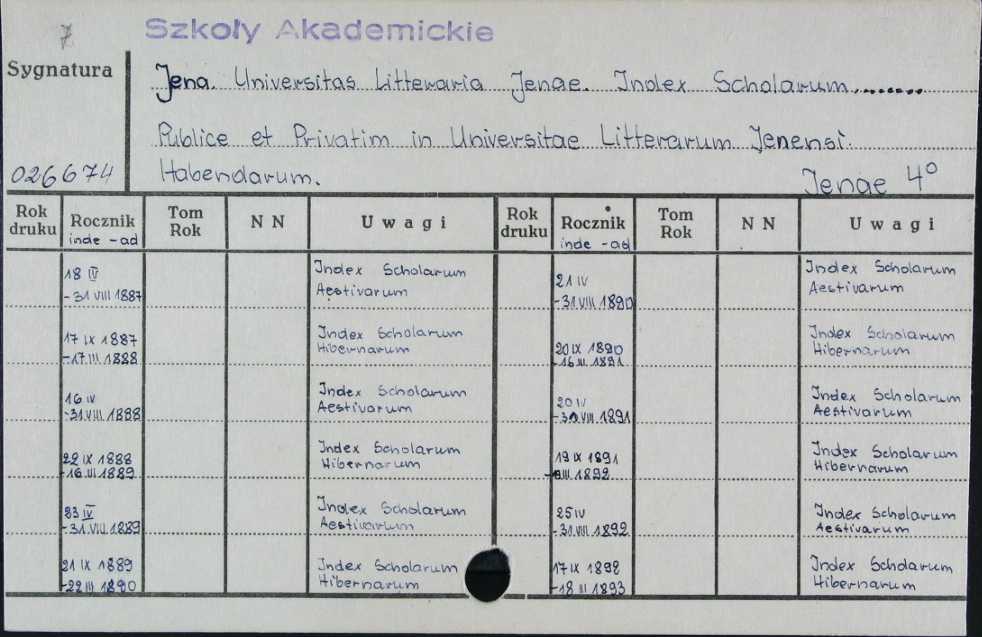 7
Szkoły Akademickie
Sygnatura
026674
Jena. Universitas Litteraria Jenae. Index Scholarum.........
Publice et Privatim in Universitae Litterarum Jenensi.
Habendarum.
Jenae 4°
Rok druku
Rocznik
inde - ad
Tom Rok
NN
Uwagi
Rok druku
Rocznik
inde - ad
Tom Rok
NN
Uwagi
18 IV
- 31 VIII 1887
Index Scholarum
Aestivarum
17 IX 1887
- 17 III 1888
Index Scholarum
Hibernarum
16 IV
- 31 VIII 1888
Index Scholarum
Aestivarum
22 IX 1888
- 16 III 1889
Index Scholarum
Hibernarum
23 IV
- 31 VIII 1889
Index Scholarum
Aestivarum
21 IX 1889
- 22 III 1890
Index Scholarum
Hibernarum
21 IV
- 31 VIII 1890
Index Scholarum
Aestivarum
20 IX 1890
- 16 III 1891
Index Scholarum
Hibernarum
20 IV
- 31 VIII 1891
Index Scholarum
Aestivarum
19 IX 1891
III 1892
Index Scholarum
Hibernarum
25 IV
- 31 VIII 1892
Index Scholarum
Aestivarum
17 IX 1892
- 18 III 1893
Index Scholarum
Hibernarum